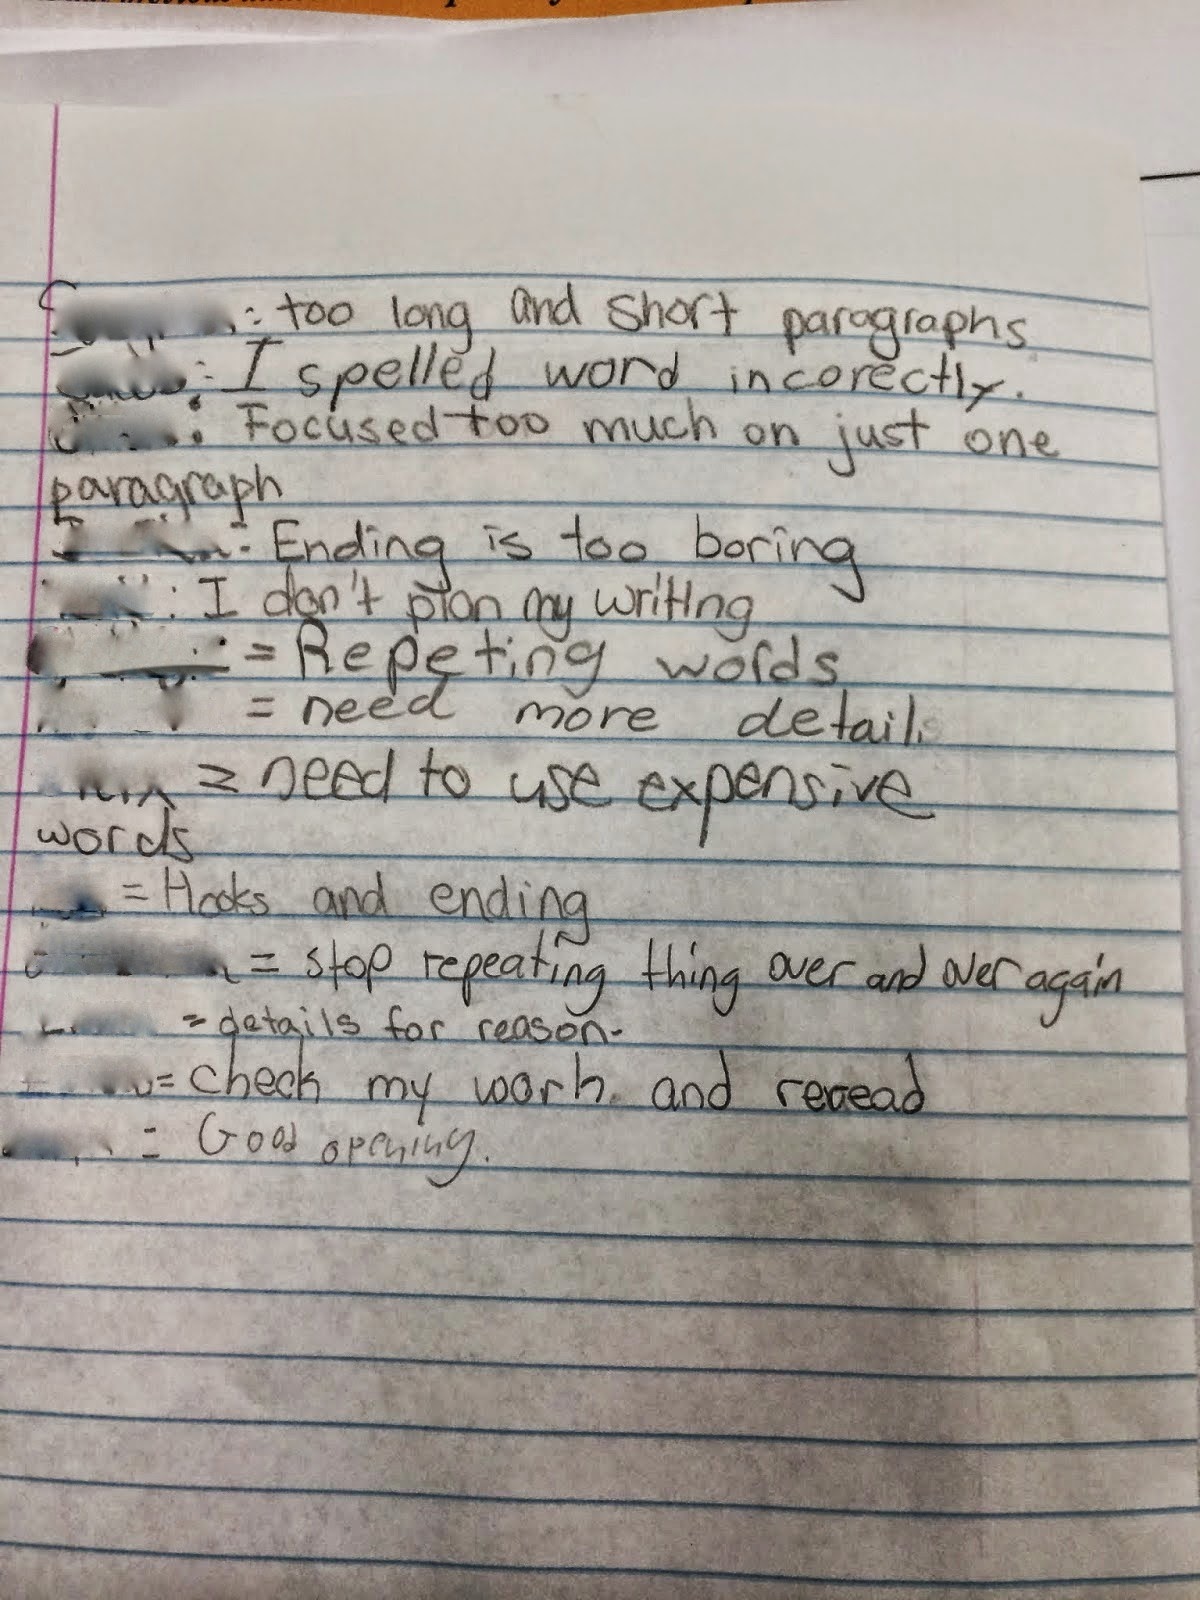 : too long and short paragraphs
: I spelled word incorectly.
: Focused too much on just one
paragraph
: Ending is too boring
: I don't plan my writing
= Repeting words
= need more detail.
= need to use expensive
words
= Hooks and ending
= stop repeating thing over and over again
= details for reason.
= check my work and reread
= Good opening.